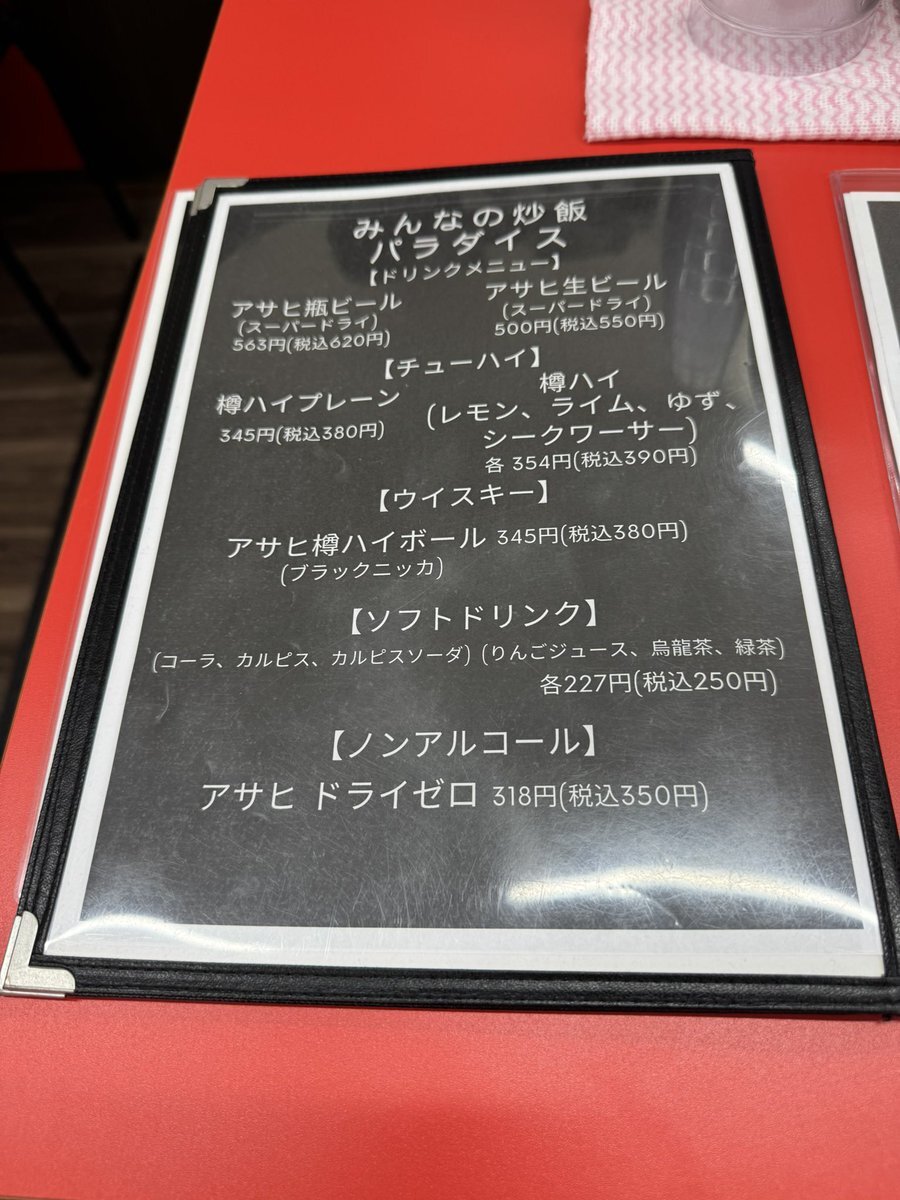 みんなの炒飯
パラダイス
【ドリンクメニュー】
アサヒ瓶ビール
(スーパードライ)
563円(税込620円)
アサヒ生ビール
(スーパードライ)
500円(税込550円)
【チューハイ】
樽ハイプレーン
345円(税込380円)
樽ハイ
(レモン、ライム、ゆず、
シークワーサー)
各 354円(税込390円)
【ウイスキー】
アサヒ樽ハイボール 345円(税込380円)
(ブラックニッカ)
【ソフトドリンク】
(コーラ、カルピス、カルピスソーダ) (りんごジュース、烏龍茶、緑茶)
各227円(税込250円)
【ノンアルコール】
アサヒ ドライゼロ 318円(税込350円)